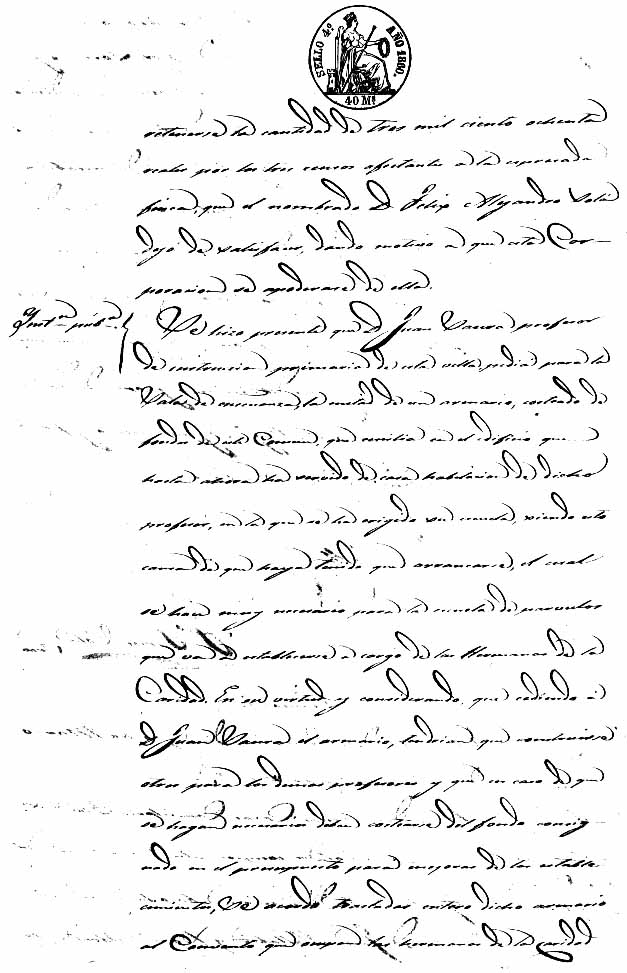 SELLO 4.º AÑO 1860.
40 Mº
retenerse la cantidad de tres mil ciento ochenta
reales por los tres censos afectantes a la espresada
finca, que el nombrado D. Felix Alejandro Solá
dejó de satisfacer, dando motivo a que esta Cor-
poracion se apoderare de ella.
Instn. pubca.
Se hizo presente que D. Juan Saura profesor
de instruccion primaria de esta villa, pedia para la
Sala de enseñanza, la mitad de un armario, costeado de
fondos de este Comun, que ecsistia en el edificio que
hasta ahora ha servido de casa habitacion de dicho
profesor, en la que se ha erigido su escuela, siendo esto
causa de que haya tenido que arrancarse, el cual
se hace muy necesario para la escuela de parvulos
que va a establecerse a cargo de las Hermanas de la
Caridad. En su virtud y considerando, que cediendo á
D. Juan Saura el armario, tendrian que construirse
otros para los demas profesores y que en caso de que
se hagan necesarios deben costearse del fondo consig-
nado en el presupuesto para mejoras de los estable
cimientos, Se acordó trasladar entero dicho armario
al Convento que ocupan las hermanas de la Caridad